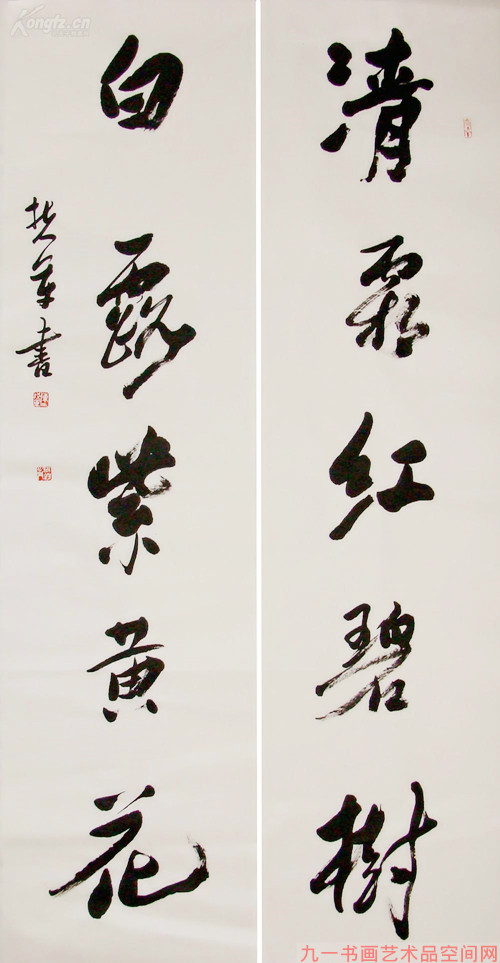 清霜红碧樹
白露紫黄花
書
Kongfz.cn
九一书画艺术品空间网